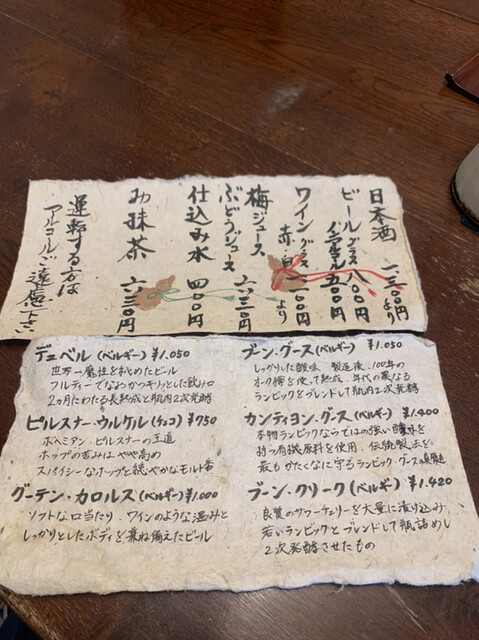 日本酒 一、三〇〇円より
ビール グラス 八〇〇円
ノンアルコール 五〇〇円
ワイン グラス 赤・白 一、一〇〇円より
梅ジュース
ぶどうジュース 六三〇円
仕込み水 四〇〇円
お抹茶 六三〇円
運転する方は
アルコールご遠慮下さい
デュベル(ベルギー) ¥1.050
世界一魔性を秘めたビール
フルーティーでなめらかキリッとした飲み口
2ヵ月にわたる長熟成と瓶内2次発酵
ピルスナー・ウルケル(チェコ) ¥750
ボヘミアン・ピルスナーの王道
ホップの苦みはやや高め
スパイシーなホップと穏やかなモルト香
グーテン・カロルス(ベルギー) ¥1.000
ソフトな口当たり、ワインのような温みと
しっかりとしたボディを兼ね備えたビール
ブーン・グース(ベルギー) ¥1.050
しっかりした酸味 製造後、100年の
オーク樽を使って熟成、年代の異なる
ランビックをブレンドして瓶内2次発酵
カンティヨン・グース(ベルギー) ¥1.400
本物ランビックならではの強い酸味を
持つ有機原料を使用、伝統製法を
最もかたくなに守るランビック・グース
ブーン・クリーク(ベルギー) ¥1.420
良質のサワーチェリーを大量に漬け込み
若いランビックとブレンドして瓶詰めし
2次発酵させたもの